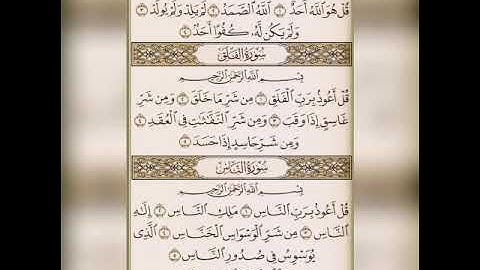 قُلْ هُوَ اللَّهُ أَحَدٌ ١ اللَّهُ الصَّمَدُ ٢ لَمْ يَلِدْ وَلَمْ يُولَدْ ٣
وَلَمْ يَكُن لَّهُ كُفُوًا أَحَدٌ ٤
سُورَةُ الفَلَقِ
بِسْمِ اللَّهِ الرَّحْمَٰنِ الرَّحِيمِ
قُلْ أَعُوذُ بِرَبِّ الْفَلَقِ ١ مِن شَرِّ مَا خَلَقَ ٢ وَمِن شَرِّ
غَاسِقٍ إِذَا وَقَبَ ٣ وَمِن شَرِّ النَّفَّاثَاتِ فِي الْعُقَدِ ٤
وَمِن شَرِّ حَاسِدٍ إِذَا حَسَدَ ٥
سُورَةُ النَّاسِ
بِسْمِ اللَّهِ الرَّحْمَٰنِ الرَّحِيمِ
قُلْ أَعُوذُ بِرَبِّ النَّاسِ ١ مَلِكِ النَّاسِ ٢ إِلَٰهِ
النَّاسِ ٣ مِن شَرِّ الْوَسْوَاسِ الْخَنَّاسِ ٤ الَّذِي
يُوَسْوِسُ فِي صُدُورِ النَّاسِ ٥